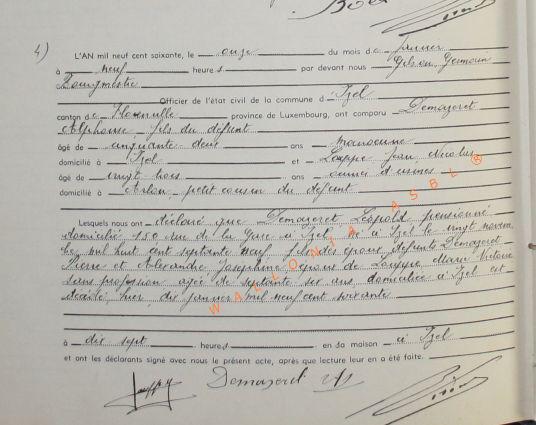 4)
L'AN mil neuf cent soixante, le onze du mois de janvier
à neuf heures par devant nous Gilson, Germain
Bourgmestre
Officier de l'état civil de la commune d'Izel
canton de Florenville province de Luxembourg, ont comparu Demazeret
Alphonse fils du défunt
âgé de cinquante deux ans manoeuvre
domicilié à Izel et Louppe Jean Nicolas
âgé de vingt trois ans ouvrier d'usines
domicilié à Arlon, petit cousin du défunt
Lesquels nous ont déclaré que Demazeret Léopold pensionné
domicilié 150 rue de la Gare à Izel né à Izel le vingt novem
bre mil huit cent septante neuf fils des époux défunts Demazeret
Pierre et Alexandre Joséphine époux de Louppe Marie Victoire
sans profession agée de septante six ans, domiciliée à Izel est
décédé hier, dix janvier mil neuf cent soixante
à dix sept heures en sa maison à Izel
et ont les déclarants signé avec nous le présent acte, après que lecture leur en a été faite.
Demazeret
WALLONIA ASBL ®